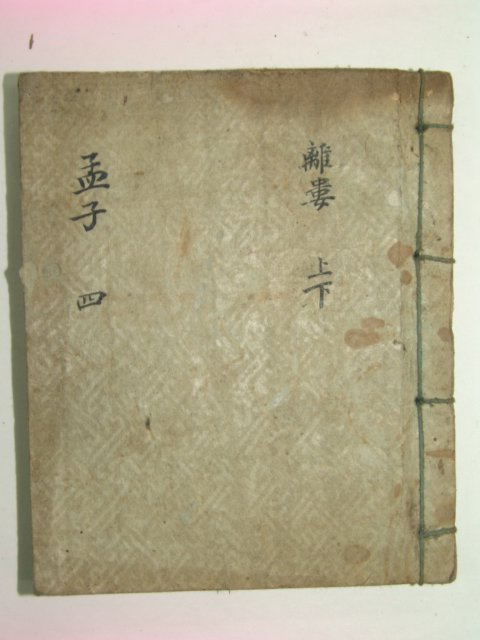 離婁 上下
孟子 四